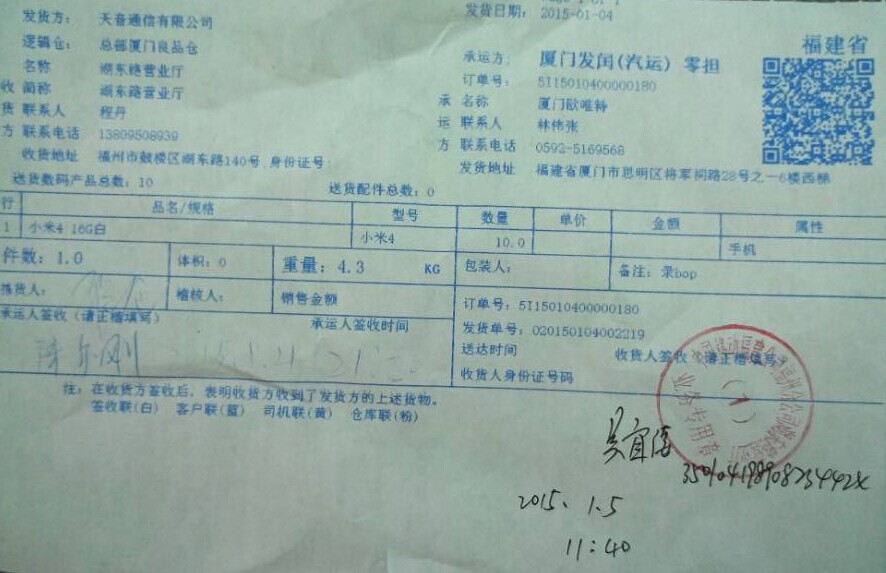 发货日期: 2015-01-04
发货方: 天音通信有限公司
逻辑仓: 总部厦门良品仓
名称 湖东路营业厅
收 简称 湖东路营业厅
货 联系人 程丹
方 联系电话 13809508939
收货地址 福州市鼓楼区湖东路140号 身份证号:
福建省
承运方: 厦门发闽(汽运) 零担
订单号: 5I15010400000180
承 名称 厦门欧唯特
运 联系人 林伟张
方 联系电话 0592-5169568
发货地址 福建省厦门市思明区将军祠路28号之一6楼西梯
送货数码产品总数: 10 送货配件总数: 0
行 品名/规格 型号 数量 单价 金额 属性
1 小米4 16G白 小米4 10.0 手机
件数: 1.0 体积: 0 重量: 4.3 KG 包装人: 备注: 录bop
拣货人: 稽核人: 销售金额
承运人签收 (请正楷填写) 承运人签收时间
订单号: 5I15010400000180
发货单号: 020150104002219
送达时间 收货人签收 (请正楷填写)
收货人身份证号码
注: 在收货方签收后, 表明收货方收到了发货方的上述货物。
签收联(白) 客户联(蓝) 司机联(黄) 仓库联(粉)
业务专用章
(1)
2015.1.5
11:40